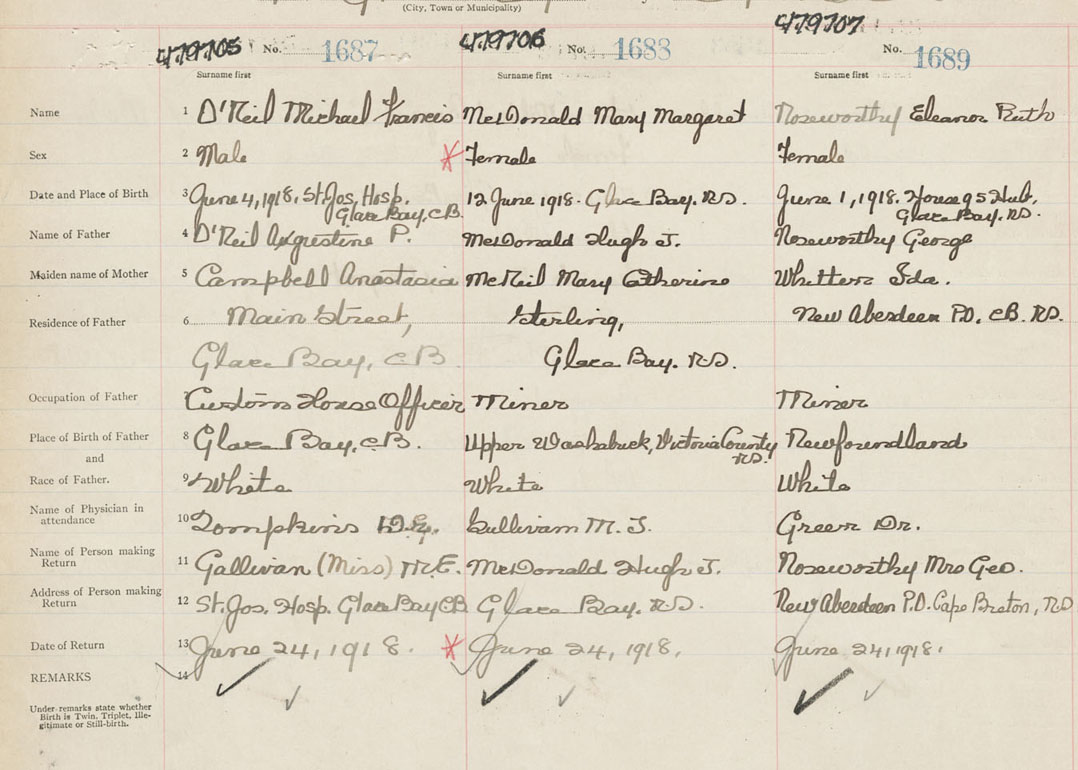 (City, Town or Municipality)
479705 No. 1687 479706 No. 1688 479707 No. 1689
Surname first Surname first Surname first
Name 1 O'Neil Michael Francis McDonald Mary Margaret Noseworthy Eleanor Ruth
Sex 2 Male Female Female
Date and Place of Birth 3 June 4, 1918. St. Jos. Hosp. 12 June 1918. Glace Bay. N.S. June 1, 1918. House 95 Hub,
Glace Bay, C.B. Glace Bay. N.S.
Name of Father 4 O'Neil Augustine P. McDonald Hugh J. Noseworthy George
Maiden name of Mother 5 Campbell Anastasia McNeil Mary Catherine Whitten Ida.
Residence of Father 6 Main Street, Sterling, New Aberdeen P.O. C.B. N.S.
Glace Bay, C.B. Glace Bay. N.S.
Occupation of Father 7 Customs House Officer Miner Miner
Place of Birth of Father 8 Glace Bay, C.B. Upper Washabuck, Victoria County Newfoundland
and N.S.
Race of Father. 9 White White White
Name of Physician in
attendance 10 Tompkins Sullivan M. J. Green Dr.
Name of Person making
Return 11 Gallivan (Miss) M.E. McDonald Hugh J. Noseworthy Mrs Geo.
Address of Person making
Return 12 St. Jos. Hosp. Glace Bay CB Glace Bay. N.S. New Aberdeen P.O. Cape Breton, N.S
Date of Return 13 June 24, 1918. June 24, 1918. June 24, 1918.
REMARKS 14
Under remarks state whether
Birth is Twin, Triplet, Ille-
gitimate or Still-birth.